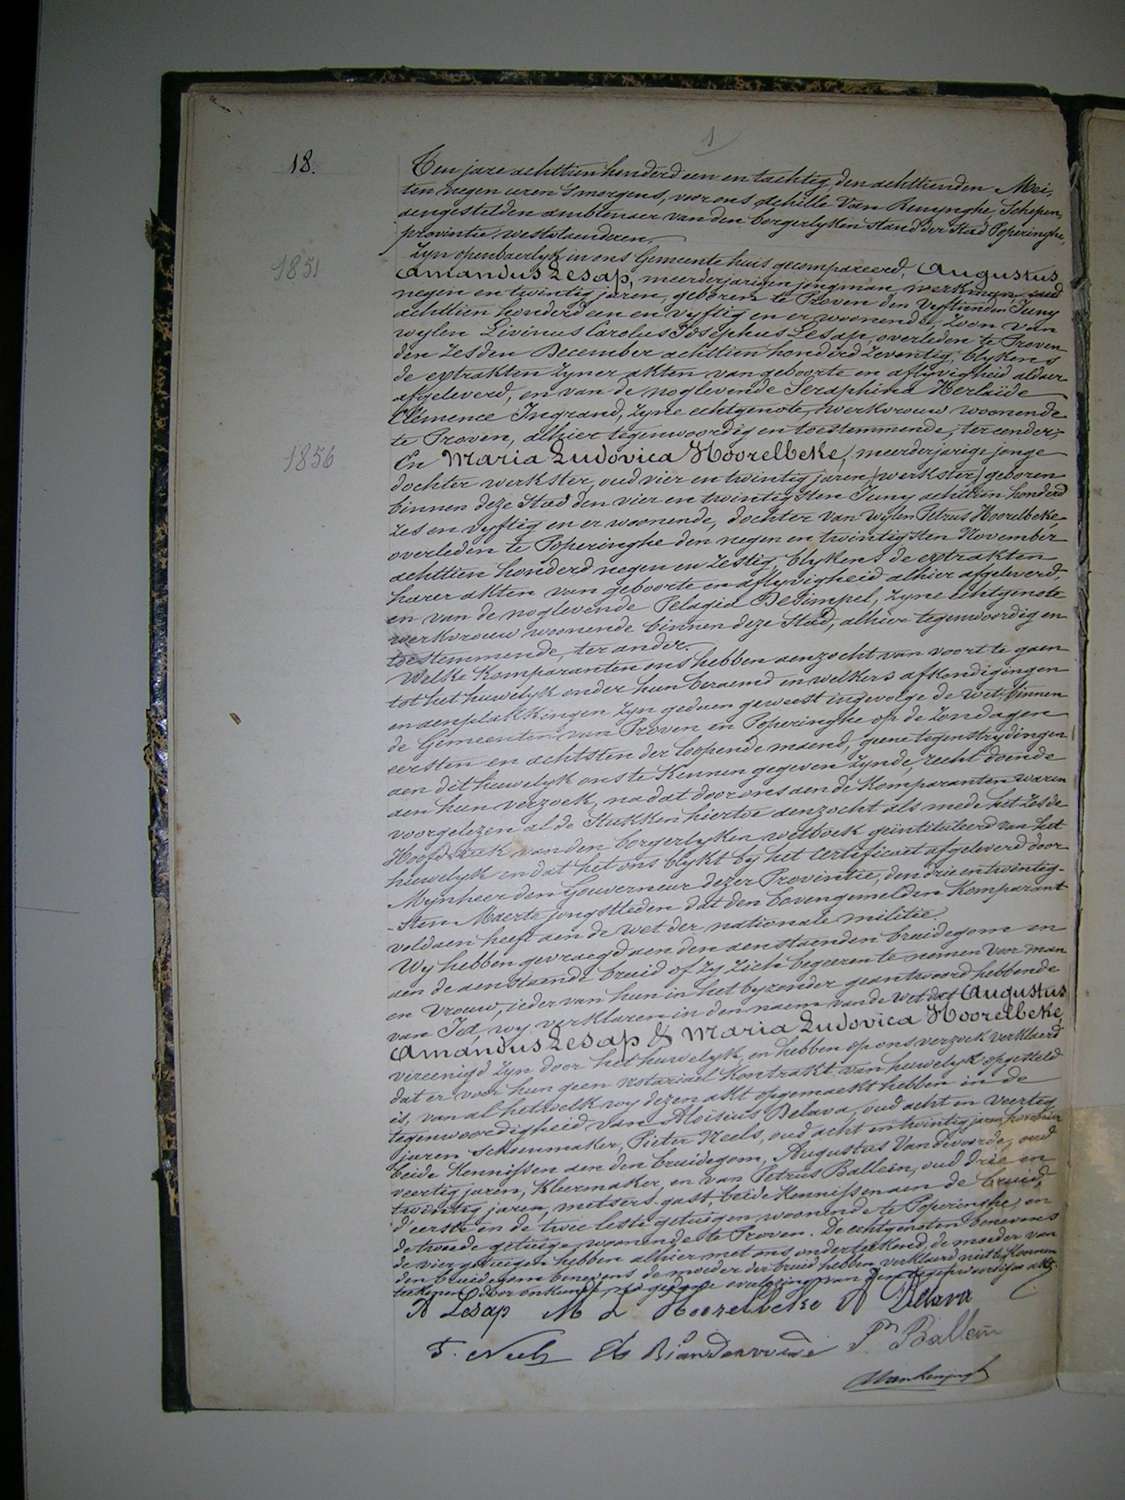 1
18.
Ten jare achttien honderd een en tachtig, den achttienden Mei,
ten negen uren s'morgens, voor ons Achille Van Renynghe, Schepen,
aengestelden ambtenaer van den borgerlyken stand der Stad Poperinghe,
provintie westvlaenderen,
Zyn openbaerlyk in ons Gemeente huis gecompareerd, Augustus
1851
Amandus Lesap, meerderjarigen jongman, werkman, oud
negen en twintig jaren, geboren te Proven den vyftienden Juny
achttien honderd een en vyftig en er woonende, zoon van
wylen Livinus Carolus Josephus Lesap, overleden te Proven
den zesden December achttien honderd zeventig, blykens
de extrakten zyner akten van geboorte en aflyvigheid aldaer
afgeleverd, en van de noglevende Seraphina Herlaïde
Clemence Ingrand, zyne echtgenote, werkvrouw woonende
te Proven, alhier tegenwoordig en toestemmende, ter eender;
1856
En Maria Ludovica Hoorelbeke, meerderjarige jonge
dochter werkster, oud vier en twintig jaren (werkster) geboren
binnen deze Stad den vier en twintigsten Juny achttien honderd
zes en vyftig en er woonende, dochter van wylen Petrus Hoorelbeke,
overleden te Poperinghe den negen en twintigsten November
achttien honderd negen en zestig, blykens de extrakten
harer akten van geboorte en aflyvigheid alhier afgeleverd,
en van de noglevende Pelagia Desimpel, zyne echtgenote
werkvrouw woonende binnen deze Stad, alhier tegenwoordig en
toestemmende, ter ander.
Welke Komparanten ons hebben aenzocht van voort te gaen
tot het huwelyk onder hun beraemd en welkers afkondigingen
en aenplakkingen zyn gedaen geweest ingevolge de wet, binnen
de Gemeenten van Proven en Poperinghe op de Zondagen
eersten en achtsten der loopende maend, geene tegenstrydingen
aen dit huwelyk ons te Kennen gegeven zynde, recht doende
aen hun verzoek, na dat door ons aen de Komparanten waren
voorgelezen al de Stukken hiertoe aenzocht als mede het zesde
Hoofdstuk van den borgerlyken wetboek geïntituleerd van het
huwelyk en dat het ons blykt by het Certificaet afgeleverd door
Mynheer den Gouverneur dezer Provintie, den drie en twintig-
-sten Maerte jongstleden dat den bovengemelden Komparant
voldaen heeft aen de wet der nationale militie.
Wy hebben gevraegd aen den aenstaenden bruidegom en
aen de aenstaende bruid of zy zich begeeren te nemen voor man
en vrouw, ieder van hun in het byzonder geantwoord hebbende
van Ja, wy verklaren in den naem van de wet dat Augustus
Amandus Lesap & Maria Ludovica Hoorelbeke,
vereenigd zyn door het huwelyk, en hebben op ons verzoek verklaerd
dat er voor hun geen notariael Kontrakt van huwelyk opgesteld
is, van al hetwelk wy dezen akt opgemaekt hebben in de
tegenwoordigheid van Aloisius Delava, oud acht en veertig
jaren schoenmaker, Pieter Neels, oud acht en twintig jaren, hovenier
beide Kennissen aen den bruidegom, Augustus Vandevoorde, oud
veertig jaren, Kleermaker, en van Petrus Ballein, oud drie en
twintig jaren, metsers gast, beide Kennissen aen de bruid,
d'eerste en de twee leste getuigen woonende te Poperinghe, en
de tweede getuige woonende te Proven. De echtgenoten benevens
de vier getuigen hebben alhier met ons onderteekend, de moeder van
den bruidegom benevens de moeder der bruid hebben verklaerd niet te Konnen
teekenen door onkunde, na gedane overlezing van den tegenwoordigen akt.
A Lesap M L Hoorelbeke A Delava
P. Neels Ballein
AVanRenynghe